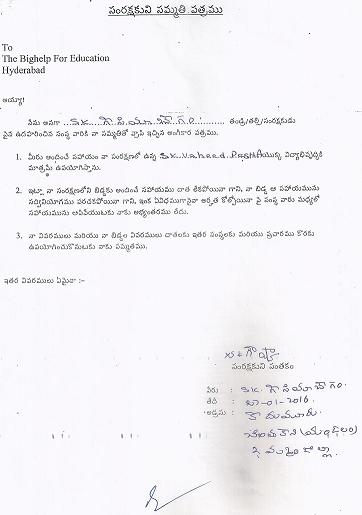 సంరక్షకుని సమ్మతి పత్రము
To
The Bighelp For Education
Hyderabad
అయ్యా!
నేను అనగా ... Sk. గౌసియా బేగం ... తండ్రి/తల్లి/సంరక్షకుడు
పైన ఉదహరించిన సంస్థ వారికి నా సమ్మతితో వ్రాసి ఇచ్చిన అంగీకార పత్రము.
1. మీరు అందించే సహాయం నా సంరక్షణలో ఉన్న Sk. Vaheed Pasha యొక్క విద్యాభివృద్ధికి
మాత్రమే ఉపయోగిస్తాను.
2. ఇట్లా నా సంరక్షణలోని బిడ్డకు అందించే సహాయము దాత లేకపోయినా గాని, నా బిడ్డ ఆ సహాయమును
సద్వినియోగము పరచకపోయినా గాని, ఇంక ఏవిధముగానైనా అర్హత కోల్పోయినా పై సంస్థ వారు మధ్యలో
సహాయమును ఆపివేయుటకు నాకు అభ్యంతరము లేదు.
3. నా వివరములు మరియు నా బిడ్డల వివరములు దాతలకు ఇతర సంస్థలకు మరియు ప్రచారము కొరకు
ఉపయోగించుకొనుటకు నాకు సమ్మతము.
ఇతర వివరములు ఏమైనా :-
సంరక్షకుని సంతకం
పేరు : Sk. గౌసియా బేగం.
తేదీ : -01-2016
అడ్రసు :